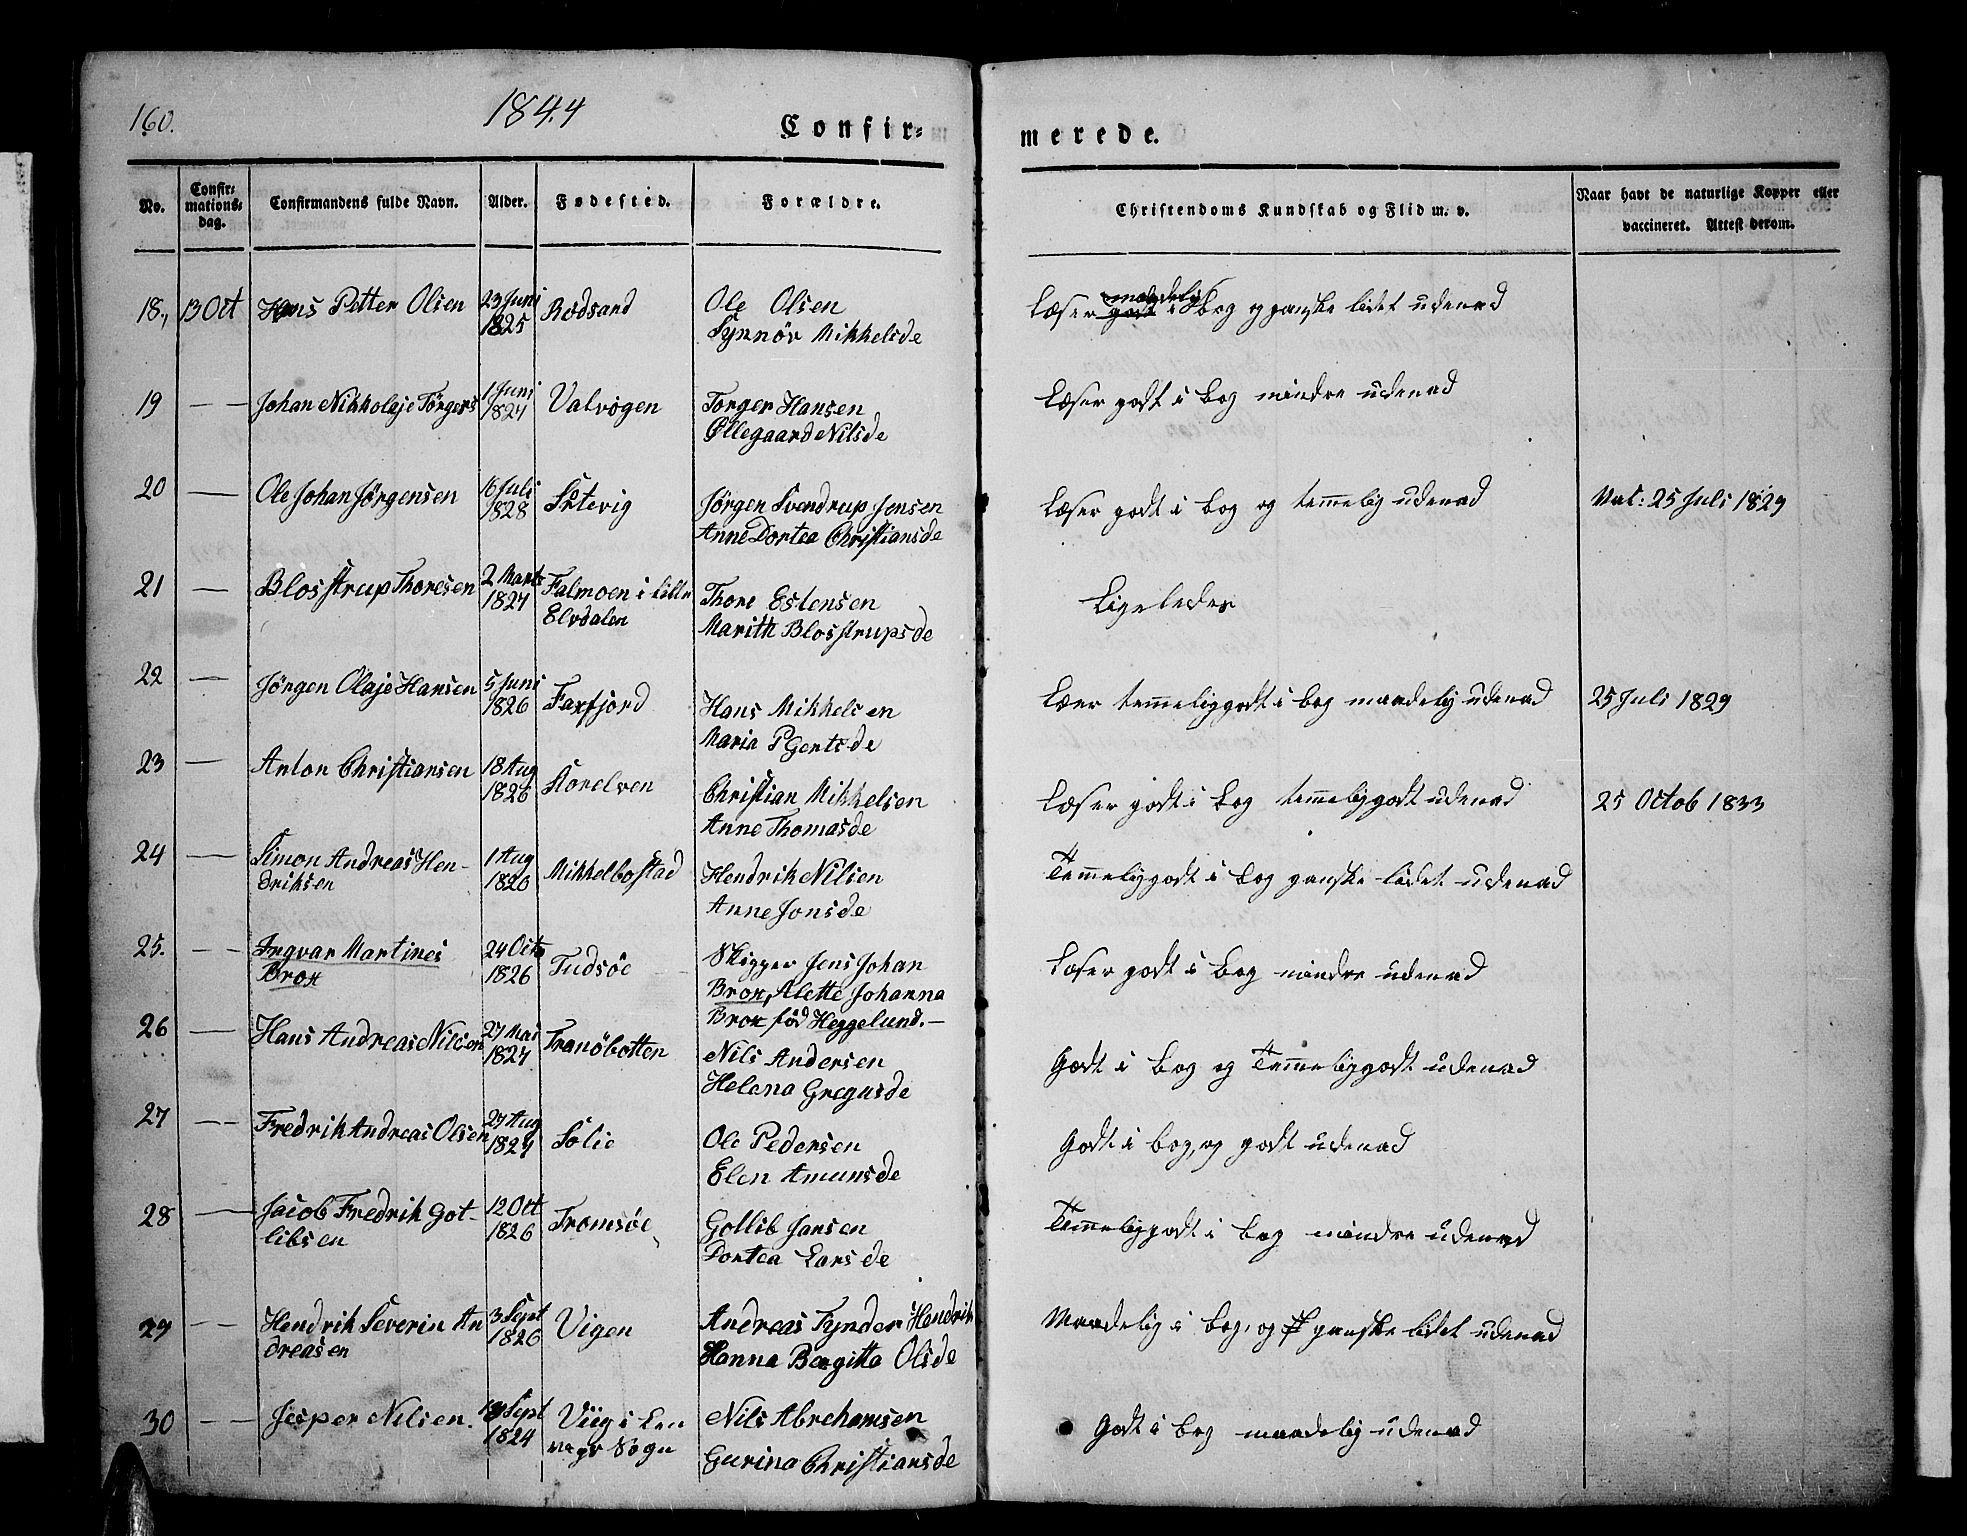 160.
1844
Confir=
merede.
No.
Confir=
mations=
dag.
Confirmandens fulde Navn.
Alder.
Fødested.
Forældre.
Christendoms Kundskab og Flid m. v.
Naar havt de naturlige Kopper eller
vaccineret. Attest derom.
18., 13 Oct Hans Petter Olsen 23 Juni Rødsand Ole Olsen Læser maadelig i Bog og ganske lidet udenad
1825 Synnöv Mikkelsde
19 — Johan Nikkolaje Törgers 1 Juni Valvogen Torger Hansen Læser godt i bog mindre udenad
1827 Ollegaard Nilsde
20 — Ole Johan Jörgensen 16 Juli Jörgen Svendrup Jensen Læser godt i bog og temmelig udenad 25 Juli 1829
1828 Anne Dortea Christiansde
21 — Blosstrup Thoresen 2 Marts Falmoen i Lille Thore Estensen Ligeledes
1827 Elvdalen Marith Blosstrupsde
22 — Jörgen Olaje Hansen 5 Juni Faxfjord Hans Mikkelsen Læser temmelig godt i bog maadelig udenad 25 Juli 1829
1826 Maria
23 — Anton Christiansen 18 Aug Korelven Christian Mikkelsen Læser godt i bog temmelig godt udenad 25 Octob 1833
1826 Anne Thomasde
24 — Simon Andreas Hen- 1 Aug Mikkelbostad Hendrik Nilsen Temmelig godt i bog ganske lidet udenad
driksen Anne Jonsde
25. — Ingvar Martines 24 Octo Tudsöe Skipper Jens Johan Læser godt i bog mindre udenad
Brox 1826 Brox, Alette Johanna
Brox föd Heggelund.—
26 — Hans Andreas Nilsen 27 Mai Tranöbotten Nils Andersen Godt i bog og Temmelig godt udenad
1827 Helena Gregusde
27 — Fredrik Andreas Olsen 27 Aug Solie Ole Pedersen Godt i bog, og godt udenad
Elen Amunsde
28 — Jacob Fredrik Got- 12 Oct Tromsöe Gotlib Jansen Temmelig godt i bog mindre udenad
libsen 1826 Dortea Larsde
29 — Hendrik Severin An 3 Sept Vigen Andreas Fynder Hendrik Maadelig i bog, og ganske lidet udenad
dreasen 1826 Hanna Bergitta Olsde
30 — Jesper Nilsen. Sept Viig i Len Nils Abrehamsen Godt i bog maadelig udenad
1824 vigs Sogn Gurina Christiansde